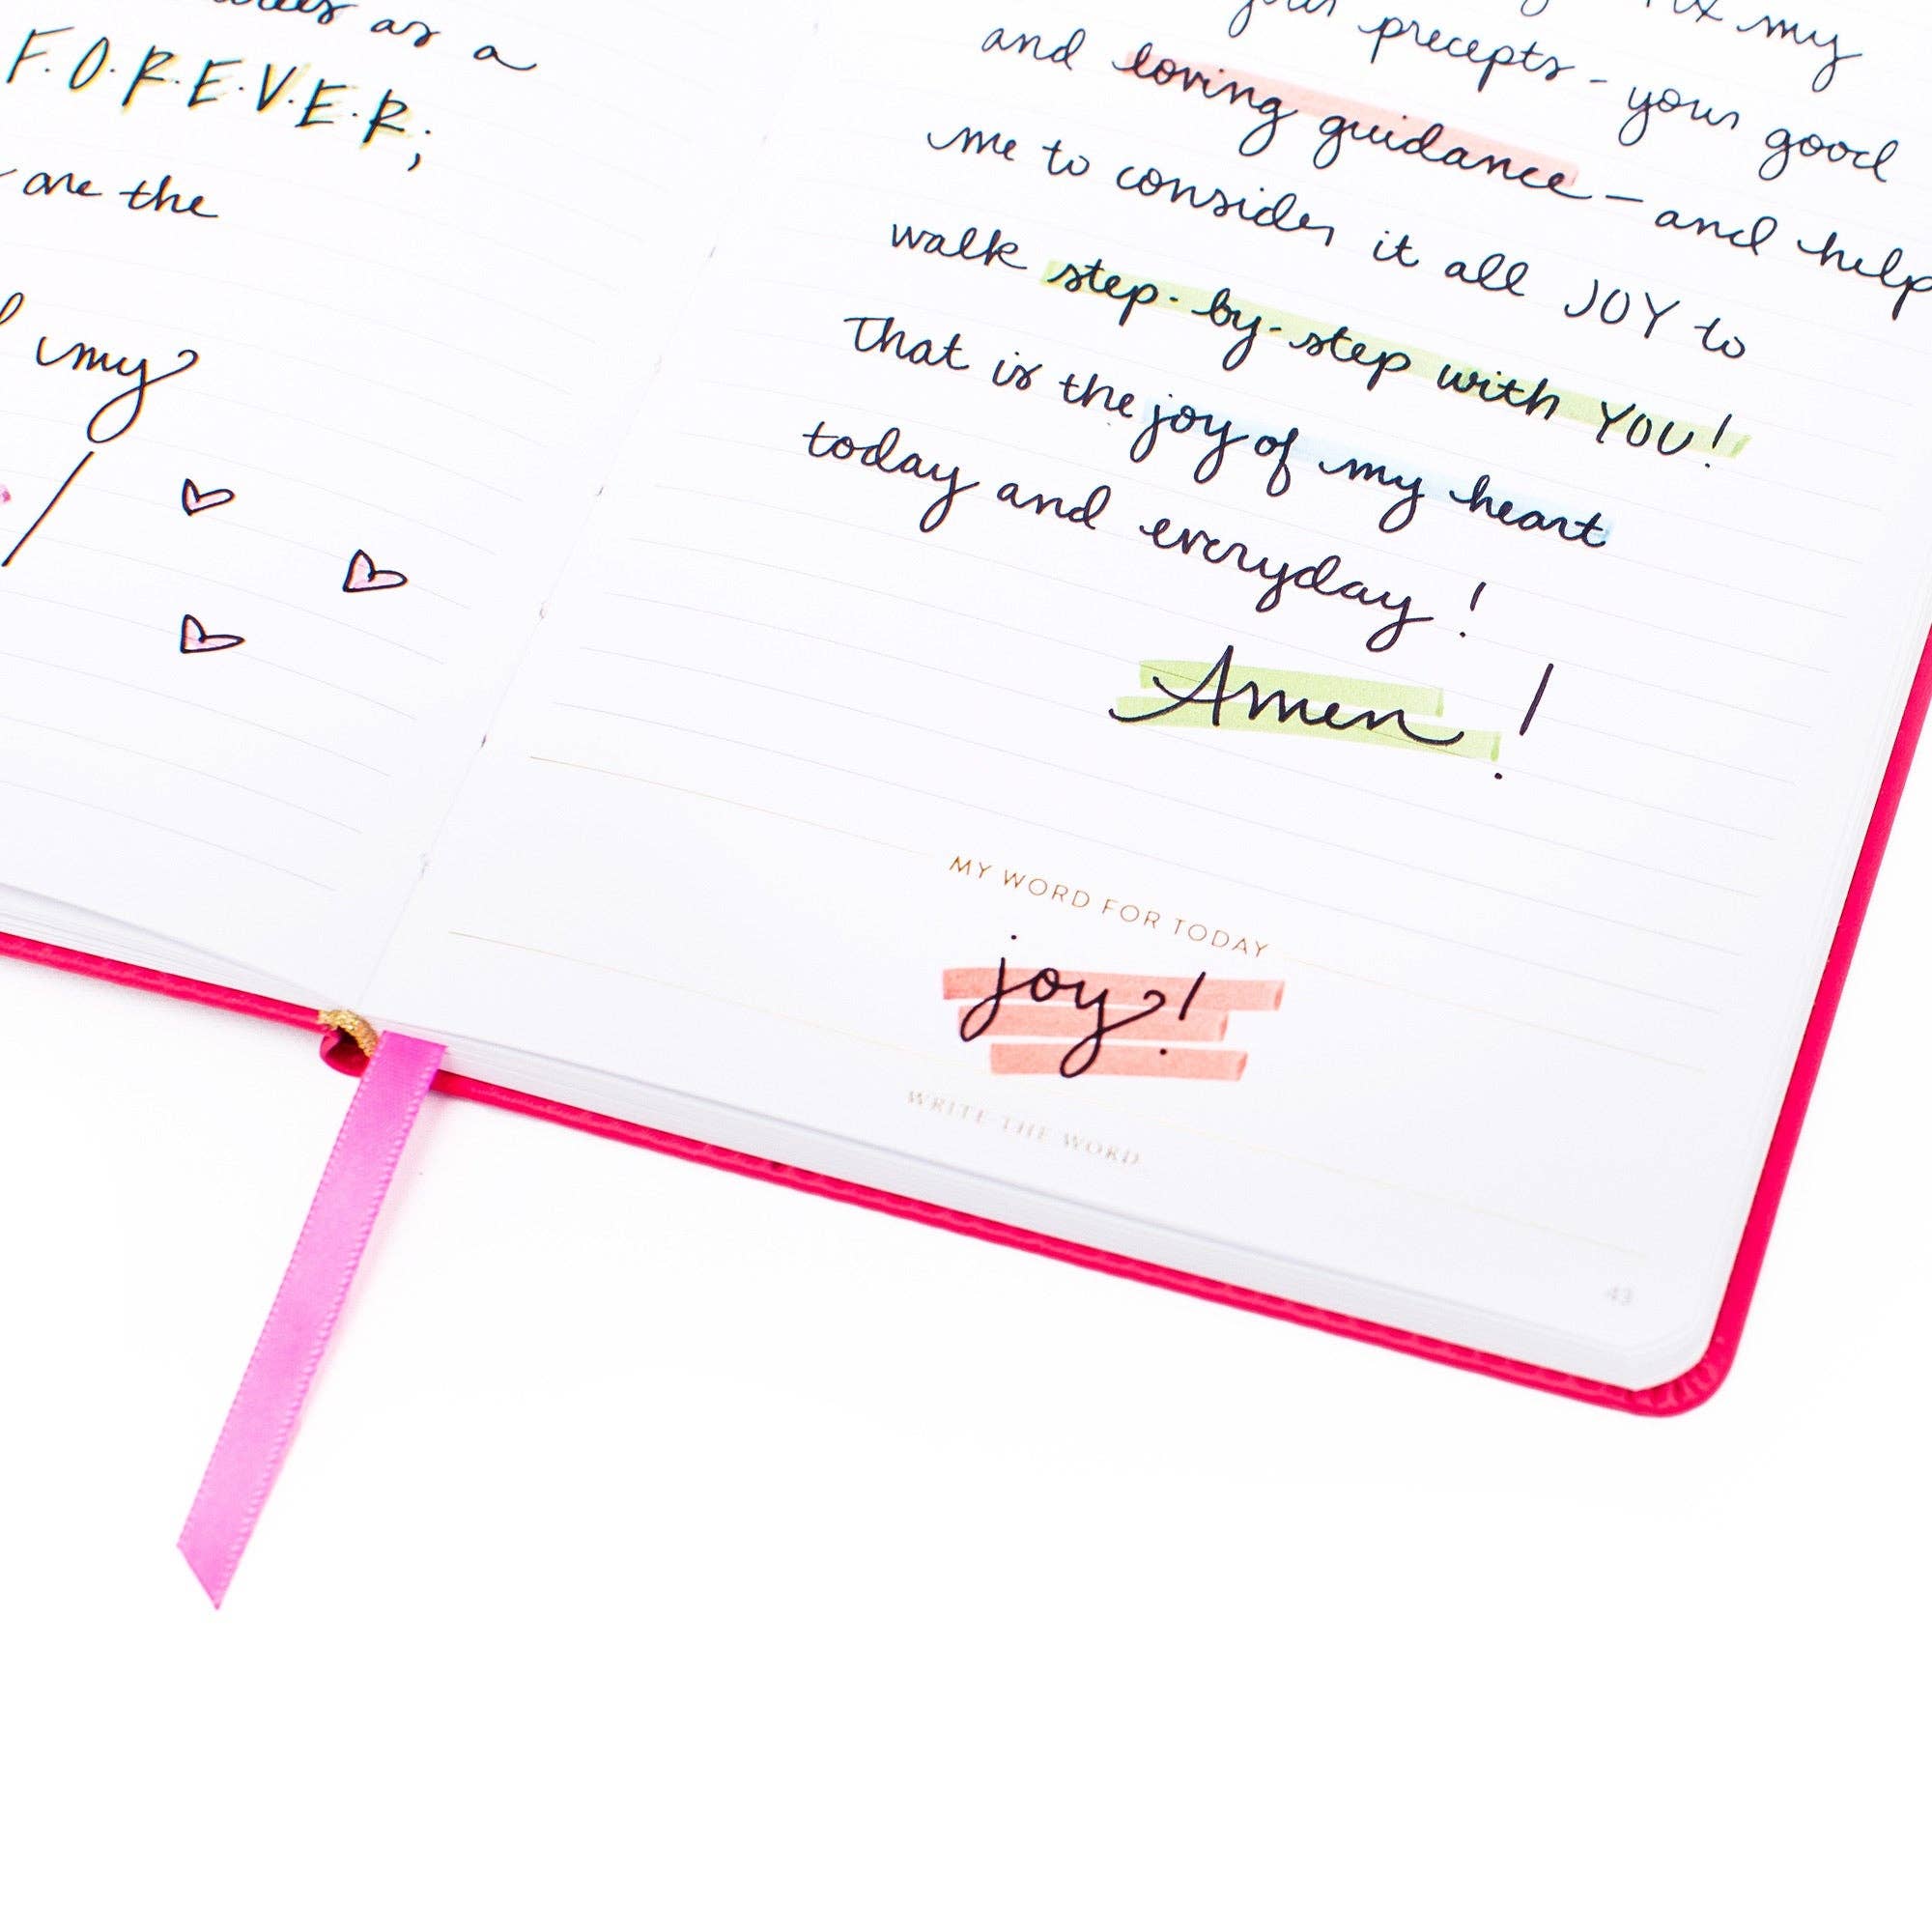 as a
F.O.R.E.V.E.R;
are the
my
!
my
your precepts - your good
and loving guidance - and help
me to consider it all JOY to
walk step-by-step with YOU!
That is the joy of my heart
today and everyday!
Amen!
MY WORD FOR TODAY
joy!
WRITE THE WORD
43